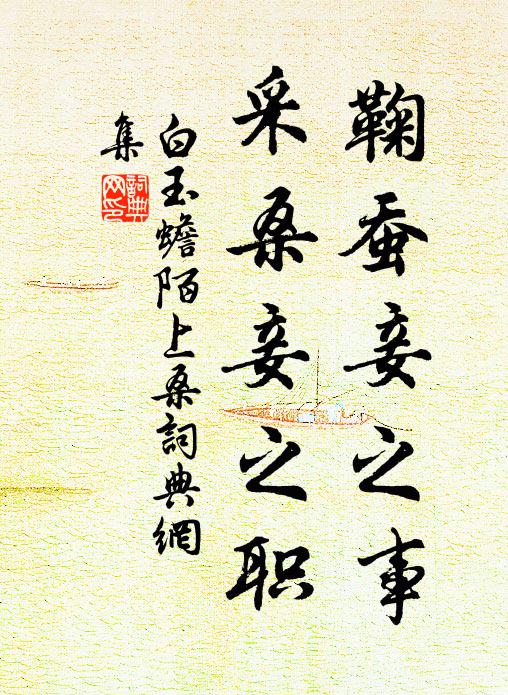 鞠蚕妾之事
采桑妾之职
白玉蟾陌上桑詞典網
集
詞典
网印